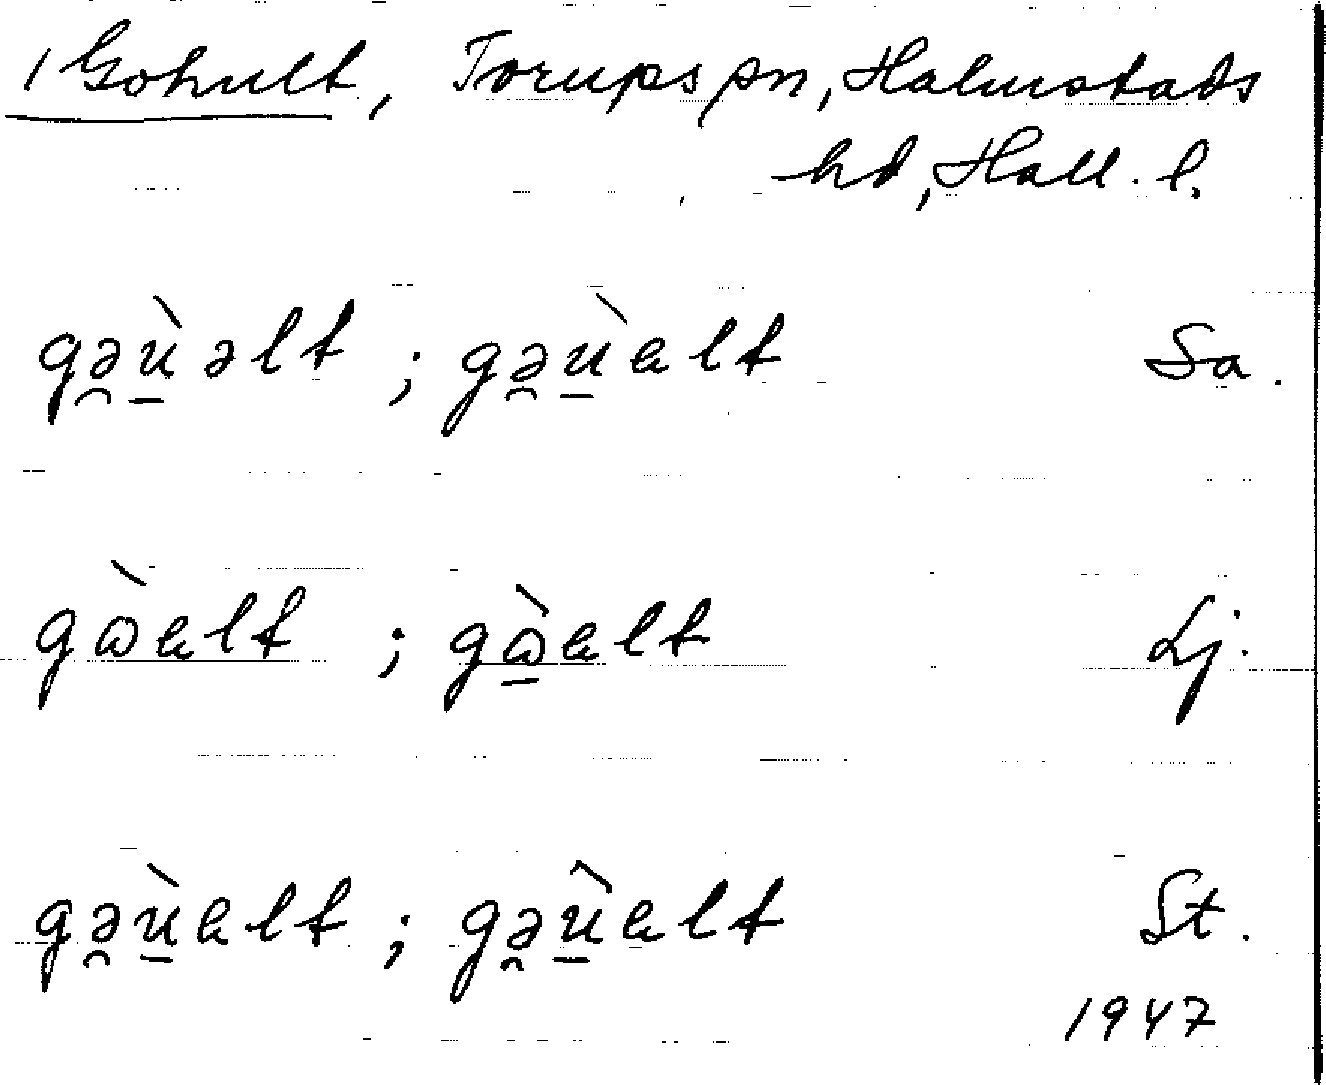 1 Gohult, Torups sn, Halmstads
hd, Hall. l.
gə̯ù̱əlt ; gə̯ù̱ɐlt Sa.
gὼɐlt ; gὼ̱ɐlt Lj.
gə̯ù̱ɐlt ; gə̯ù̱ɐlt St.
1947